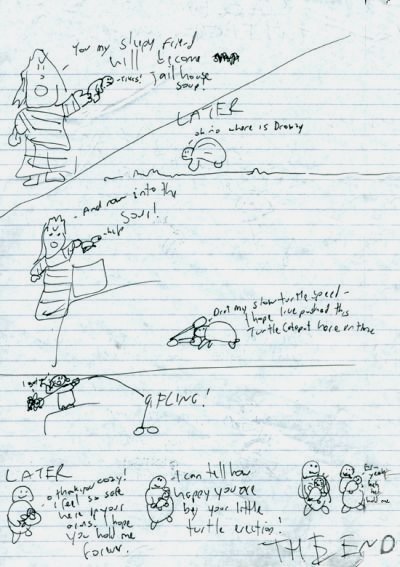 You my sleepy friend
will become
- yikes! Jailhouse
soup!
LATER
oh no where is Drowzy
- And now into the
soup!
- help
Drat my slow turtle speed -
I hope I've pushed this
turtle catapult here on time
I got
FLING!
LATER
thank you cozy!
I feel so safe
here in your
arms. I hope
you hold me
forever.
I can tell how
happy you are
by your little
turtle erection!
yeah
just
hold me
THE END